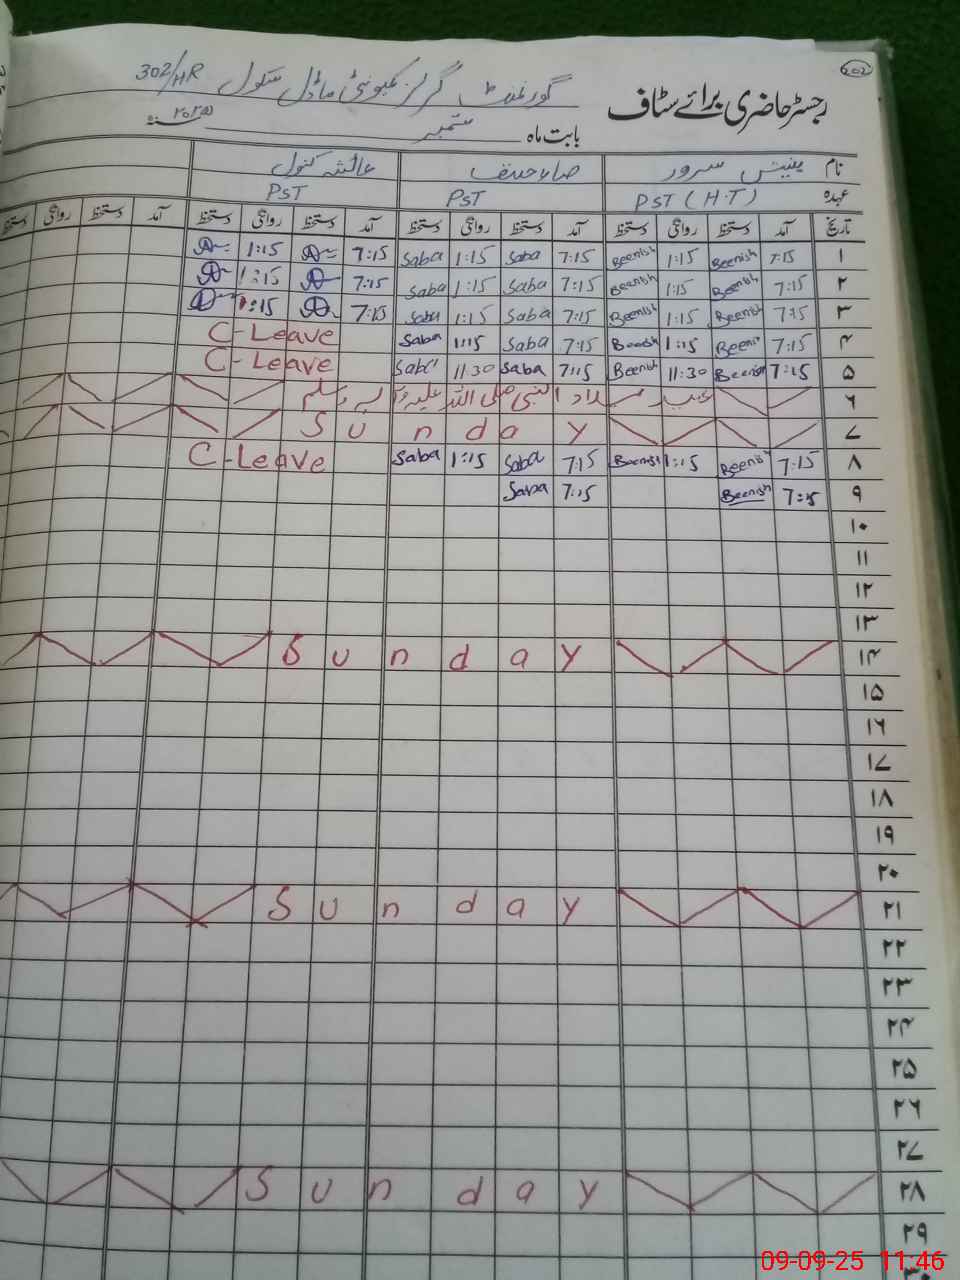 202
گورنمنٹ گرلز کمیونٹی ماڈل سکول 302/HR
رجسٹر حاضری برائے سٹاف
بابت ماہ ستمبر ۲۰۲۵
نام سرور صباء حنیف عائشہ کنول
عہدہ PST (H.T) PST PST
تاریخ آمد دستخط روانگی دستخط آمد دستخط روانگی دستخط آمد دستخط روانگی دستخط آمد دستخط روانگی دستخط
۱ 7:15 Beenish 1:15 Beenish 7:15 Saba 1:15 Saba 7:15 1:15
۲ 7:15 Beenish 1:15 Beenish 7:15 Saba 1:15 Saba 7:15 1:15
۳ 7:15 Beenish 1:15 Beenish 7:15 Saba 1:15 Saba 7:15 1:15
۴ 7:15 Beenish 1:15 Beenish 7:15 Saba 1:15 Saba C-Leave
۵ 7:15 Beenish 11:30 Beenish 7:15 Saba 11:30 Saba C-Leave
۶ عید میلاد النبی صلی اللہ علیہ وآلہ وسلم
۷ Sunday
۸ 7:15 Beenish 1:15 Beenish 7:15 Saba 1:15 Saba C-Leave
۹ 7:15 Beenish 7:15 Saba
۱۰
۱۱
۱۲
۱۳
۱۴ Sunday
۱۵
۱۶
۱۷
۱۸
۱۹
۲۰
۲۱ Sunday
۲۲
۲۳
۲۴
۲۵
۲۶
۲۷
۲۸ Sunday
۲۹
۳۰
09-09-25 11:46